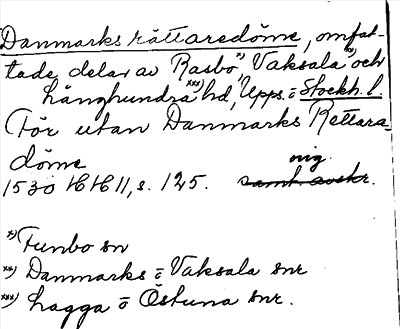 Danmarks rättaredöme, omfat-
tade delar av Rasbo x), Vaksala xx) och
Långhundra xxx) hd, Upps. o Stockh. l.
(För utan Danmarks Rettara-
döme
orig.
1530 HH 11, s. 125. samt. avskr.
x) Funbo sn
xx) Danmarks o Vaksala snr
xxx) Lagga o Östuna snr.